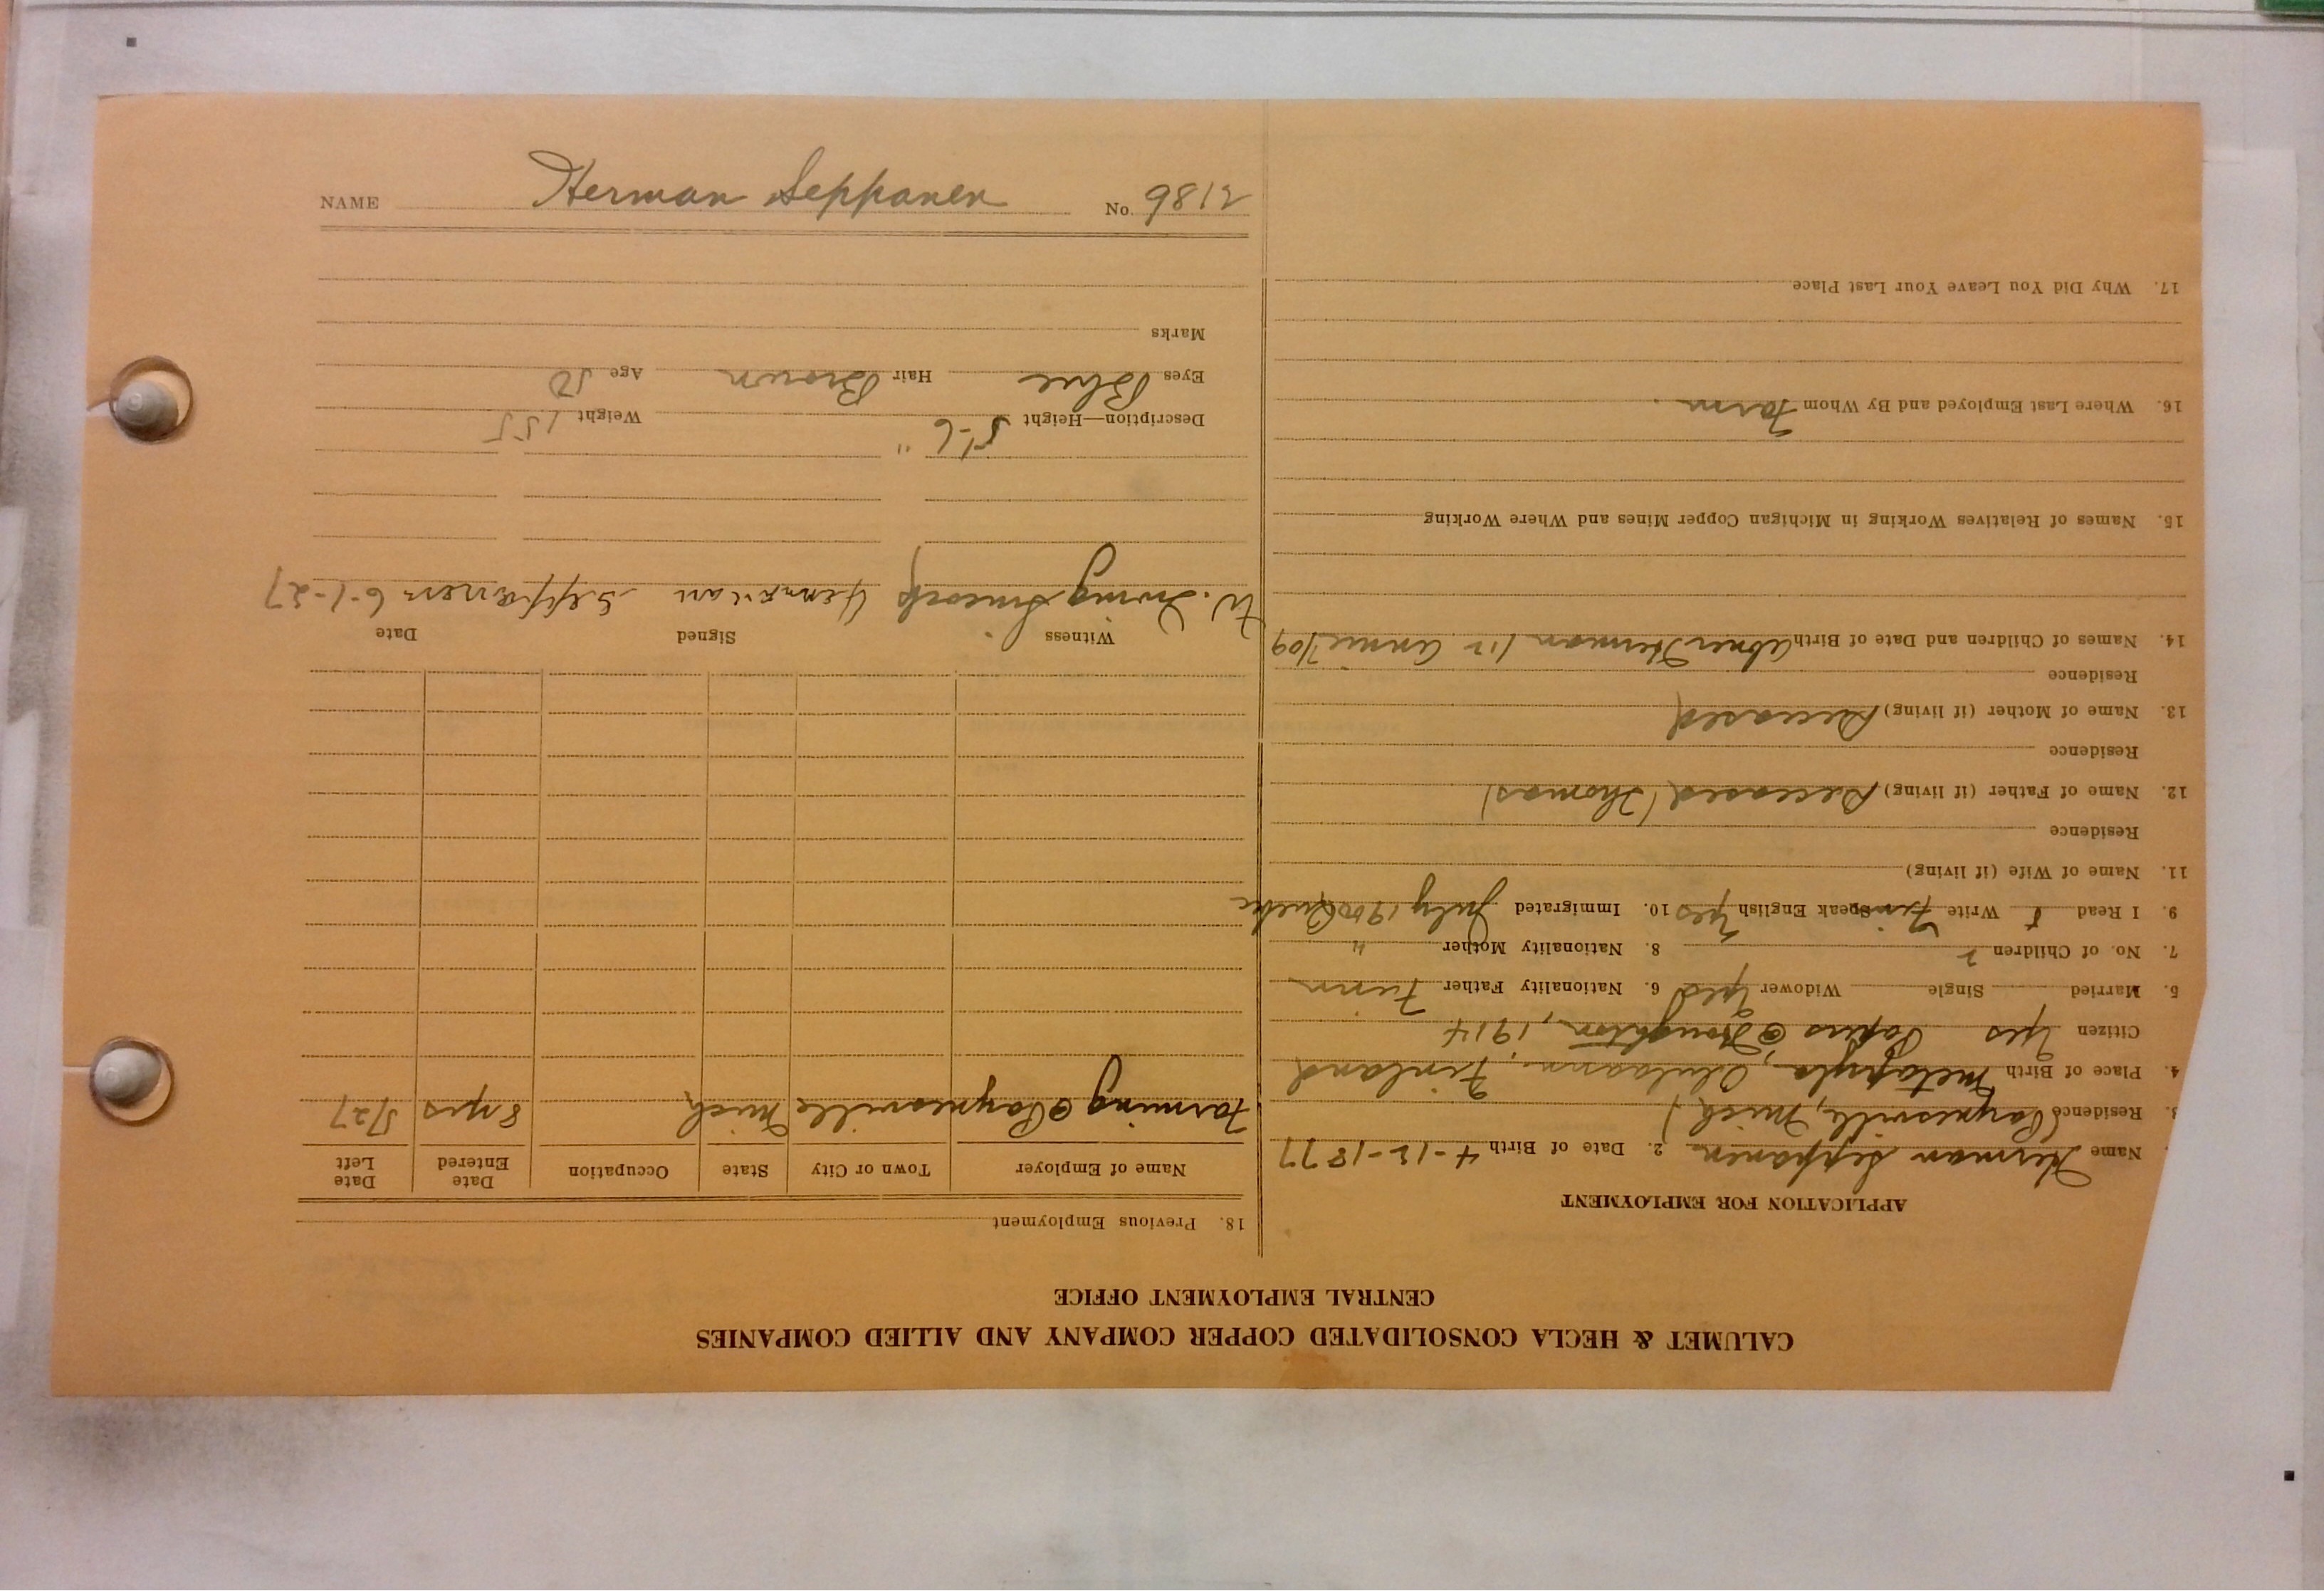 CALUMET & HECLA CONSOLIDATED COPPER COMPANY AND ALLIED COMPANIES
CENTRAL EMPLOYMENT OFFICE
APPLICATION FOR EMPLOYMENT
Name Herman Seppanen 2. Date of Birth 4-12-1877
3. Residence (Paynesville, Mich)
4. Place of Birth Finland
Citizen Yes Papers @ Houghton, 1914
5. Married Single Widower Yes 6. Nationality Father Finn
7. No. of Children 2 8. Nationality Mother "
9. I Read & Write Finn Speak English Yes 10. Immigrated July 1900 Quebec
11. Name of Wife (if living)
Residence
12. Name of Father (if living) Deceased (Thomas)
Residence
13. Name of Mother (if living) Deceased
Residence
14. Names of Children and Date of Birth Abner Herman /12 Annie /09
15. Names of Relatives Working in Michigan Copper Mines and Where Working
16. Where Last Employed and By Whom Farm.
17. Why Did You Leave Your Last Place
18. Previous Employment
Name of Employer Town or City State Occupation Date Entered Date Left
Farming @ Paynesville Mich 8 yrs 5/27
Witness Signed Date
W. Irving Herman Seppanen 6-1-27
Description—Height 5'-6" Weight 155
Eyes Blue Hair Brown Age 50
Marks
NAME Herman Seppanen No. 9812